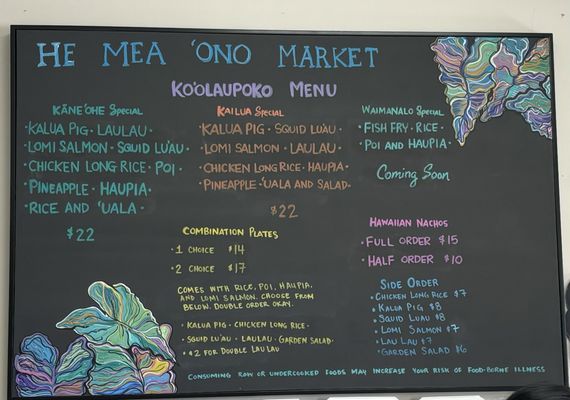 HE MEA ʻONO MARKET
KOʻOLAUPOKO MENU
KĀNEʻOHE SPECIAL
·KALUA PIG · LAULAU ·
·LOMI SALMON · SQUID LUʻAU ·
·CHICKEN LONG RICE · POI ·
·PINEAPPLE · HAUPIA ·
·RICE AND ʻUALA ·
$22
KAILUA SPECIAL
·KALUA PIG · SQUID LUʻAU ·
·LOMI SALMON · LAULAU ·
·CHICKEN LONG RICE · HAUPIA ·
·PINEAPPLE · ʻUALA AND SALAD ·
$22
WAIMANALO SPECIAL
·FISH FRY · RICE ·
·POI AND HAUPIA ·
Coming Soon
COMBINATION PLATES
·1 CHOICE $14
·2 CHOICE $17
COMES WITH RICE, POI, HAUPIA,
AND LOMI SALMON. CHOOSE FROM
BELOW. DOUBLE ORDER OKAY.
·KALUA PIG · CHICKEN LONG RICE ·
·SQUID LUʻAU · LAULAU · GARDEN SALAD ·
·+$2 FOR DOUBLE LAULAU
HAWAIIAN NACHOS
·FULL ORDER $15
·HALF ORDER $10
SIDE ORDER
·CHICKEN LONG RICE $7
·KALUA PIG $8
·SQUID LUAU $8
·LOMI SALMON $7
·LAU LAU $7
·GARDEN SALAD $6
CONSUMING RAW OR UNDERCOOKED FOODS MAY INCREASE YOUR RISK OF FOOD-BORNE ILLNESS